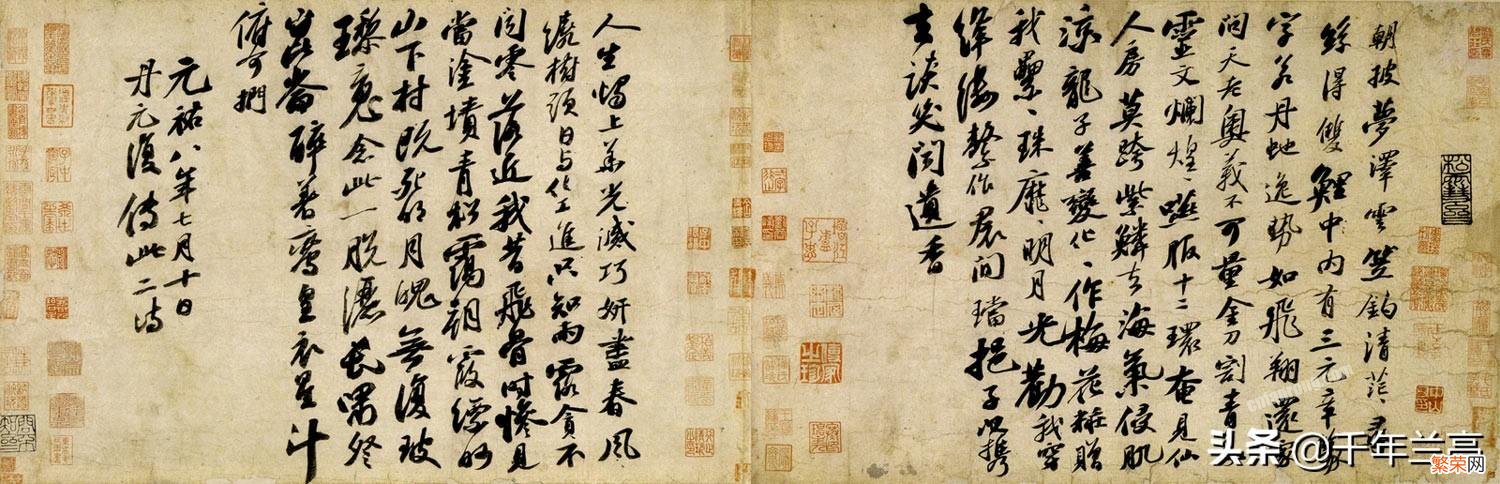 朝披夢澤雲笠釣清茫〻尋
絲得雙鯉中內有三元章篆
字若丹虵逸勢如飛翔還家
問天老奧義不可量金刀割青
靈文爛煌〻嚥服十二環奄見仙
人房莫跨紫鱗去海氣侵肌
涼龍子善變化〻作梅花粧贈
我纍〻珠靡〻明月光勸我穿
絳縷繫作裙間璫挹子以携
去談笑聞遺香
人生燭上華光滅巧妍盡春風
繞樹頭日與化工進只知雨露貪不
聞零落近我昔飛骨時慘見
當塗墳青松靄朝霞縹眇
山下村既死明月魄無復玻
瓈魂念此一脫灑長嘯祭
崑崙醉著鸞皇衣星斗
俯可捫
元祐八年七月十日
丹元復傳此二詩
头条@千年兰亭
繁荣网